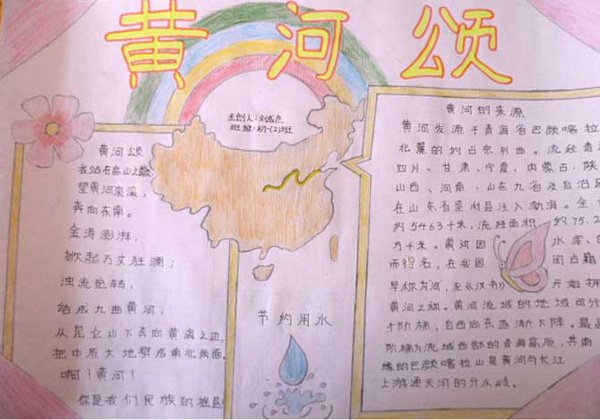 黄河颂
主创人:
班级:初一(2)班
黄河颂
我站在高山之巅
望黄河滚滚,
奔向东南。
金涛澎湃,
掀起万丈狂澜;
浊流宛转,
结成九曲黄河;
从昆仑山下奔向黄海之边,
把中原大地劈成南北两面。
啊!黄河!
你是我们民族的摇篮
节约用水
黄河的来源
黄河发源于青海省巴颜喀拉
北麓的约古宗列曲。流经青
四川、甘肃、宁夏、内蒙古、陕
山西、河南、山东九省及自治区
在山东省垦利县注入渤海。全
约5463千米,流经面积 约75.2
万千米。黄河因 水浑、
而得名,在我国 古籍
早称为河,至从汉书 开始拥
黄河之称。黄河流域的地域可分
个阶梯,自西向东逐渐下降。最高
阶梯为流域西部的青海高原,其南
缘的巴颜喀拉山是黄河与长江
上游通天河的分水岭。